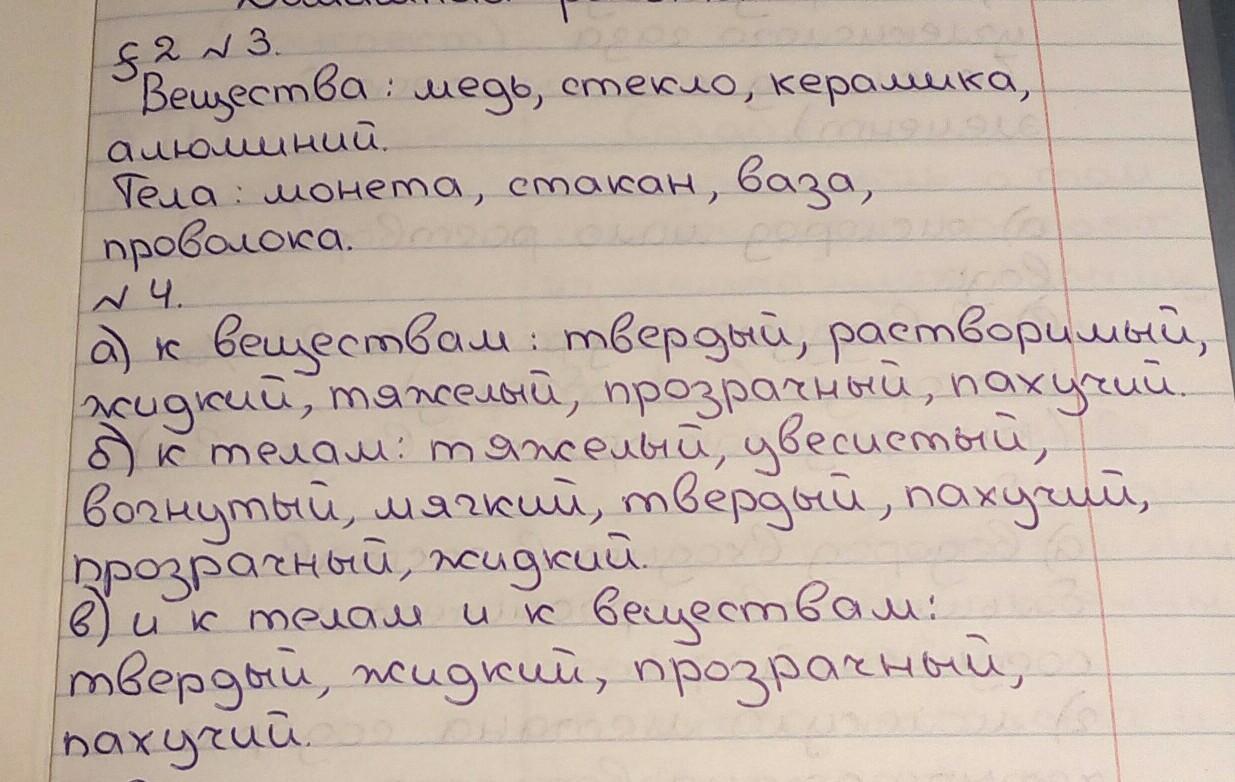 §2 N3.
Вещества: медь, стекло, керамика,
алюминий.
Тела: монета, стакан, ваза,
проволока.
N 4.
а) к веществам: твердый, растворимый,
жидкий, тяжелый, прозрачный, пахучий.
б) к телам: тяжелый, увесистый,
вогнутый, мягкий, твердый, пахучий,
прозрачный, жидкий.
в) и к телам и к веществам:
твердый, жидкий, прозрачный,
пахучий.